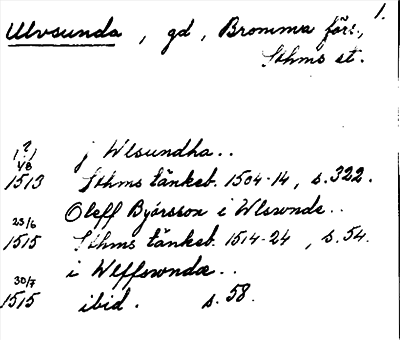 1.
Ulvsunda, gd, Bromma förs.,
Sthms st.
[?] j Wlsundha..
1/8 1513 Sthms tänkeb. 1504-14, s. 322.
Oleff Byórsson i Wlsronde..
23/6 1515 Sthms tänkeb. 1514-24, s. 54.
i Wlffsrondæ..
30/7 1515 ibid. s. 58.